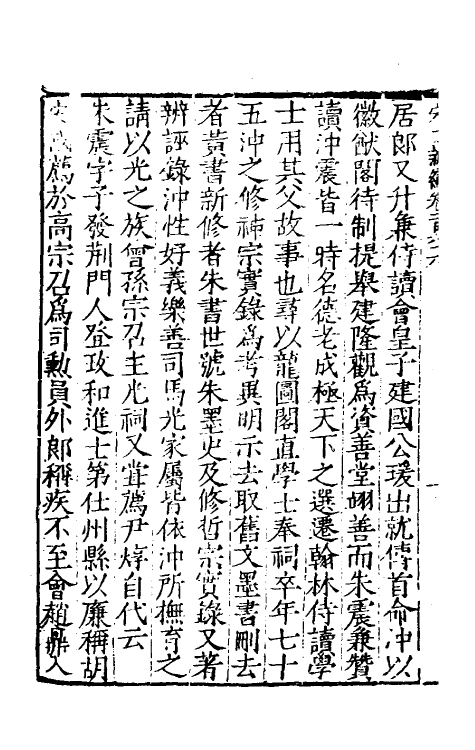 居郎又升兼侍讀會皇子建國公瑗出就傅首命沖以
徽猷閣待制提舉建隆觀爲資善堂翊善而朱震兼贊
讀沖震皆一時名德老成極天下之選遷翰林侍讀學
士用其父故事也尋以龍圖閣直學士奉祠卒年七十
五沖之修神宗實錄爲考異明示去取舊文墨書刪去
者黃書新修者朱書世號朱墨史及修哲宗實錄又著
辨誣錄沖性好義樂善司馬光家屬皆依沖所撫育之
請以光之族曾孫宗召主光祠又嘗薦尹焞自代云
朱震字子發荆門人登政和進士第仕州縣以廉稱胡
安國薦於高宗召爲司勲員外郎稱疾不至會趙鼎入